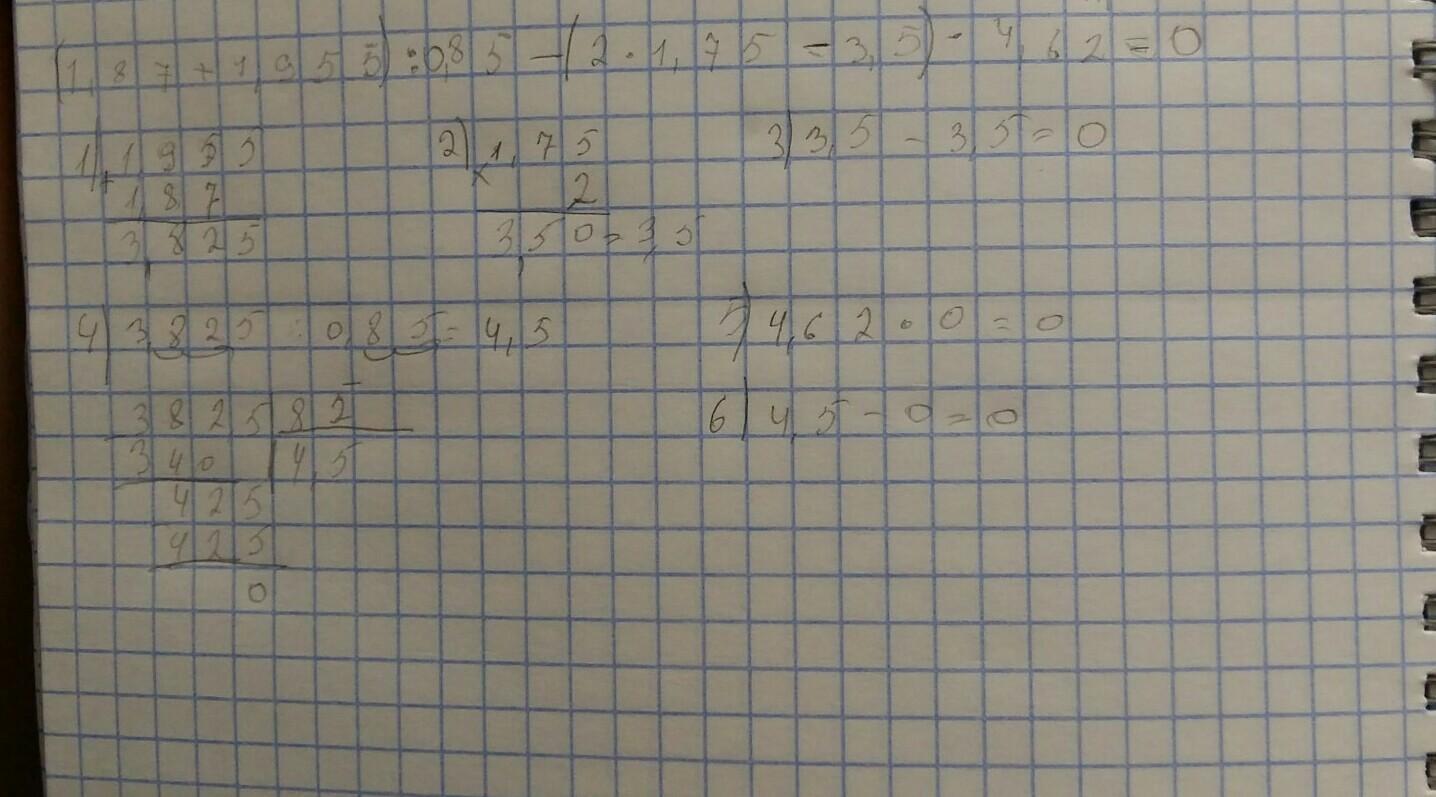 (1,87+1,955):0,85-(2·1,75-3,5)·4,62=0
1) +1955 2) ×1,75 3) 3,5-3,5=0
1,87 2
3,825 3,50=3,5
4) 3,825:0,85=4,5 5) 4,62·0=0
3825 82 6) 4,5-0=0
340 4,5
425
425
0